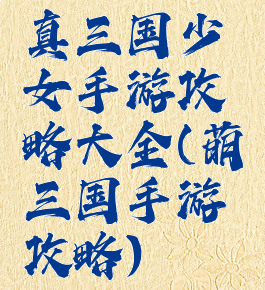 真三国少
女手游攻
略大全(萌
三国手游
攻略)